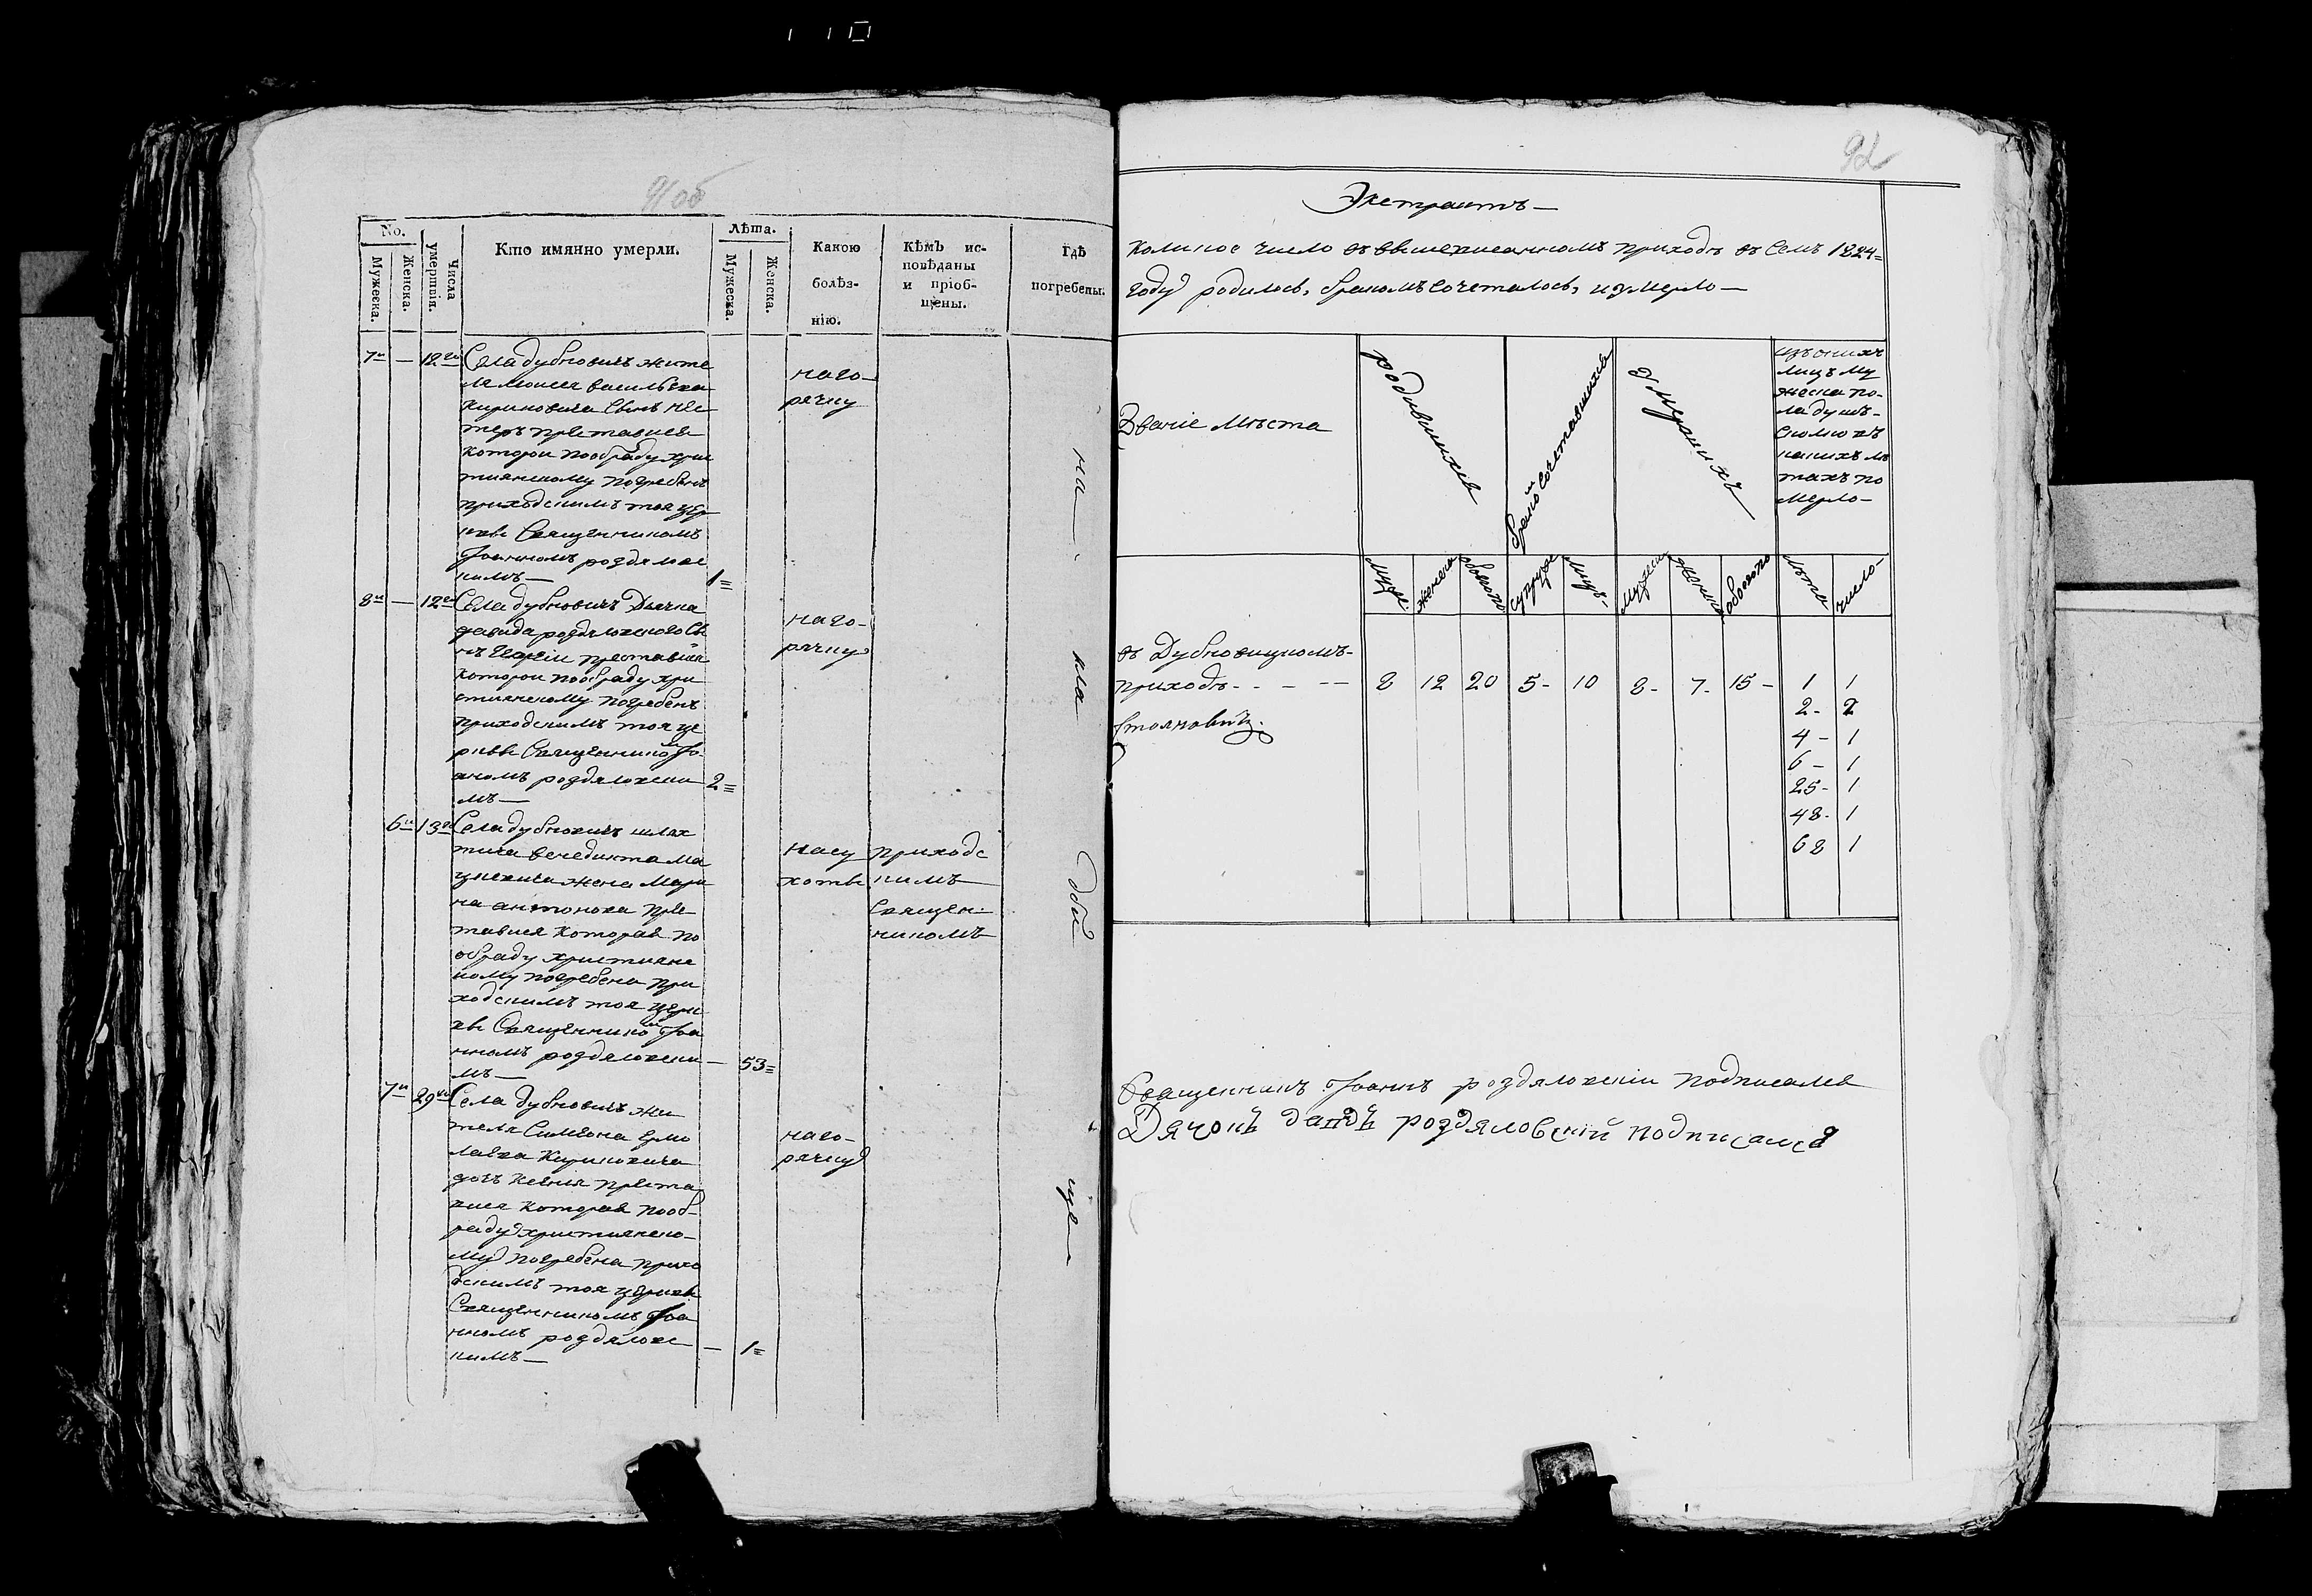 91 об
No.
Мужеска.
Женска.
Числа умертвія.
Кто имянно умерли.
Лѣта.
Мужеска.
Женска.
Какою
болѣз-
нію.
Кѣмъ ис-
повѣданы
и пріоб-
щены.
Гдѣ
погребены.
7и — 12го Села дубновичъ жите
ля Моисея василѣева
Кириковича Сынъ Не
теръ преставися
которой пообраду хри
тиянскому погребенъ
приходскимъ тоя цер
кве Священникомъ
Іоанномъ роздяловс
кимъ —
1=
наго-
рячку
8и — 12го Села дубновичъ Дьячка
давида роздяловского Сы
нъ преставися
которой пообраду хри
стиянскому погребенъ
приходскимъ тоя це
ркве Священникомъ Іо
аномъ роздяловски
мъ —
2=
наго-
рячку
6и 13го Села дубновичъ шлях
тича венедикта Ма
цкевича жена Мари
на антонова пре
тавися которая по
обраду христианс
кому погребена при
ходскимъ тоя церк
ве Священникомъ Іоа
нномъ роздяловски
мъ —
— 53=
насу
хоты
приходс
кимъ
Священ-
никомъ
7и 29го Села дубновичъ жи
теля Симеона Ермо
лаева Кириковича
дочъ Ксения преста
вися которая пооб-
раду християнско-
му погребена прихо
дскимъ тоя церкве
Священникомъ Іоа
нномъ роздяловс
кимъ —
— 1=
наго-
рячку
на
кла
дби
ще
92
Экстрактъ —
Коликое число въ вышеписанномъ приходѣ въ Семъ 1824=
году родилось, бракомъ Сочеталось, и умерло —
Звание Мѣста
родившихся
бракомъ Сочетавшихся
Умершихъ
изъ оныхъ
лицъ му
жеска по-
ла душъ-
сколко въ
какихъ лѣ
тахъ по
мерло-
мужес
женска
обоего
супруж
лицъ-
мужеска
женска
обоего
лѣта
число-
въ Дубновицкомъ-
приходѣ - - — --
8 12 20 5- 10 8- 7- 15- 1 1
2- 2
4- 1
6- 1
25- 1
48- 1
68 1
Священникъ Іоаннъ роздяловскій подписался
Дячокъ роздяловскій подписался